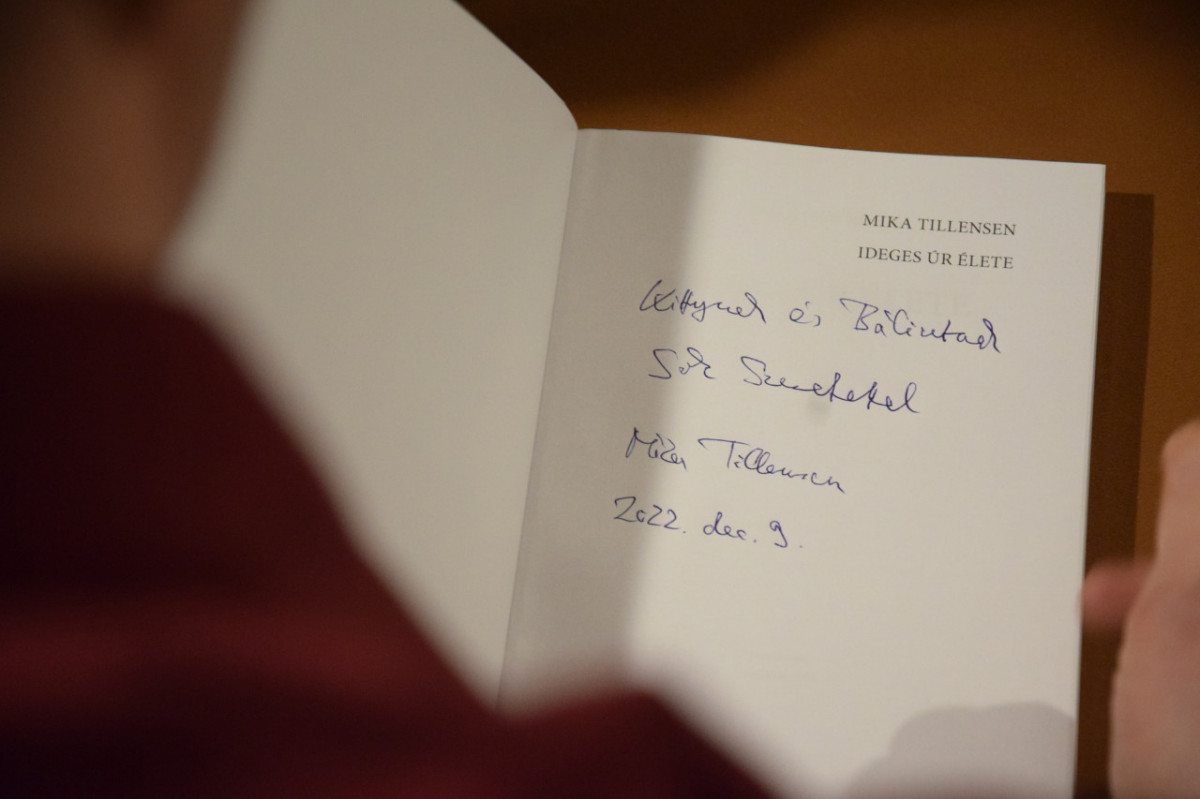 MIKA TILLENSEN
IDEGES ÚR ÉLETE
Kittynek és Bálintnak
Sok Szeretettel
Mika Tillensen
2022. dec. 9.